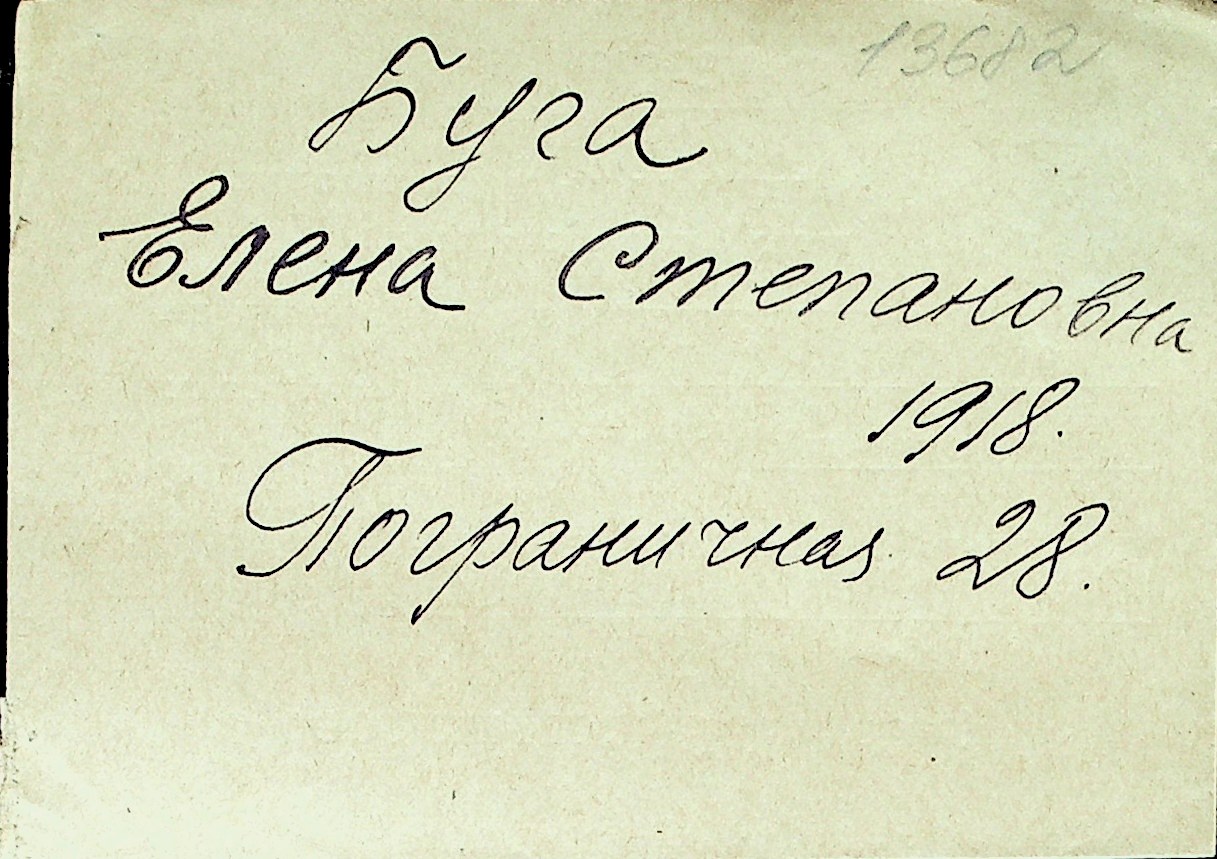 13682
Буга
Елена Степановна
1918.
Пограничная 28.